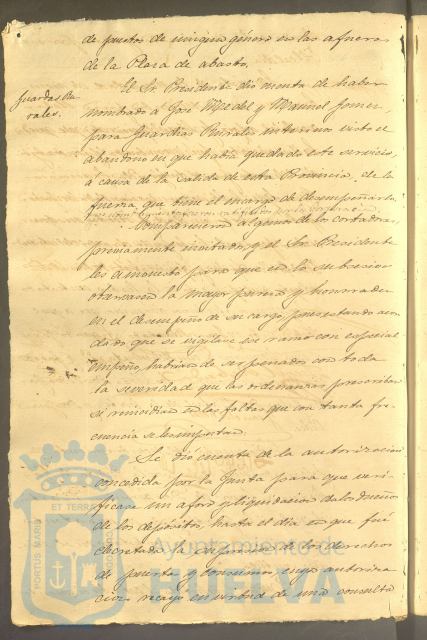 de puestos de ningun género en las afueras
de la Plaza de abasto.
Guardas Ru-
rales.
El Sr. Presidente dio cuenta de haber
nombrado á José Medel y Manuel Gomez
para Guardias Rurales interinos visto el
abandono en que habia quedado este servicio,
á causa de la salida de esta Provincia, de la
fuerza que tiene el encargo de desempeñarlo,
Comparecieron algunos de los cortadores,
previamente invitados, y el Sr. Presidente
les amonestó para que en lo subcesivo
observasen la mayor pureza y honradez
en el desempeño de su cargo, pues estando acor-
dado que se vigilase ese ramo con especial
empeño, habian de ser penados con toda
la severidad que las ordenanzas prescriben
si reincidian en las faltas que con tanta fre-
cuencia se les imputan.
Se dio cuenta de la autorizacion
concedida por la Junta para que veri-
ficase un aforo y liquidacion de los dueños
de los depósitos, hasta el dia en que fué
decretada la supresion de los derechos
de puertas y consumos cuya autoriza-
cion recayo en virtud de una consulta
PORTUS MARIS
ET TERRAE
CUSTODIA
Ayuntamiento de
HUELVA